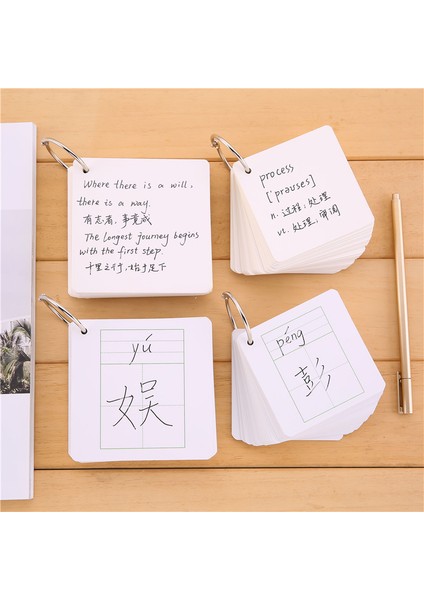 Where there is a will,
there is a way.
有志者,事竟成
The longest journey begins
with the first step.
千里之行,始于足下
process
['prəuses]
n. 过程;处理
vt. 处理,
yú
娱
péng
彭